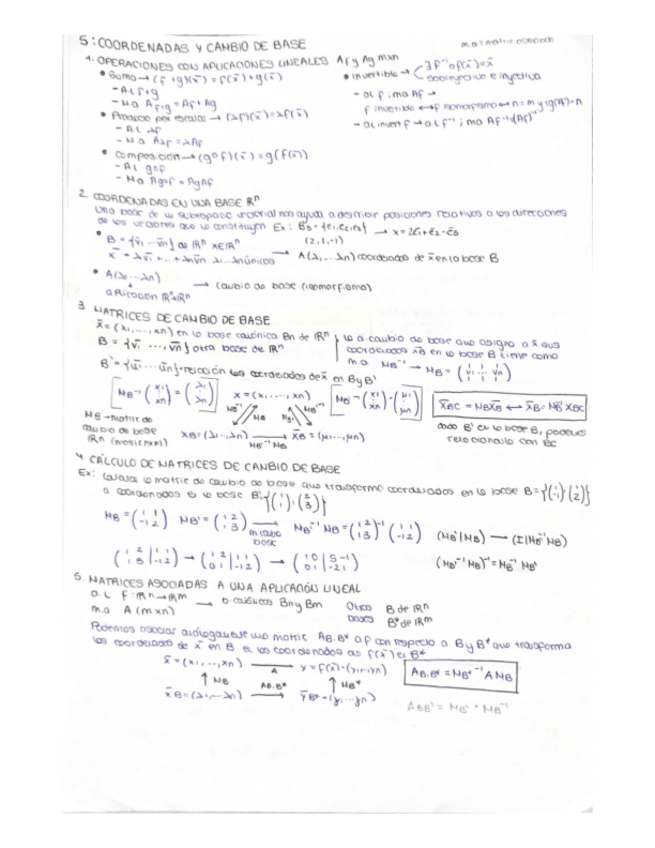 5: COORDENADAS Y CAMBIO DE BASE
m.a = matriz asociada
1. OPERACIONES CON APLICACIONES LINEALES Af y Ag mxn
• Suma → (f+g)(x̄) = f(x̄) + g(x̄)
- AL f+g
- Ma Af+g = Af + Ag
• Producto por escalar → (λf)(x̄) = λf(x̄)
- AL λf
- Ma Aλf = λAf
• Composición → (g∘f)(x̄) = g(f(x̄))
- AL g∘f
- Ma Ag∘f = AgAf
• Invertible → ∃f⁻¹∘f(x̄) = x̄
sobreyectiva e inyectiva
- aL f ; ma Af →
f invertible ↔ f isomorfismo ↔ n = m y rg(Af) = n
- aL invert f → aL f⁻¹ ; ma Af⁻¹ = (Af)⁻¹
2. COORDENADAS EN UNA BASE ℝⁿ
Una base de un subespacio vectorial nos ayuda a describir posiciones relativas a las direcciones
de los vectores que lo constituyen Ex: B3 = {e1, e2, e3} → x = 2e̅1 + e̅2 - e̅3
(2, 1, -1)
• B = {v̅1 ... v̅n} de ℝⁿ x∈ℝⁿ
x̄ = λ1v̅1 + ... + λnv̅n λ1...λn únicos → A(λ1 ... λn) coordenadas de x̄ en la base B
• A(λ1 ... λn)
↓
aplicación ℝⁿ→ℝⁿ → (cambio de base (isomorfismo)
3. MATRICES DE CAMBIO DE BASE
x̄ = (x1, ..., xn) en la base canónica Bn de ℝⁿ
B = {v̅1 ..., v̅n} otra base de ℝⁿ
la a. cambio de base que asigna a x̄ sus
coordenadas x̄B en la base B tiene como
m.a MB⁻¹ → MB = (v1 v1 ... vn)
B' = {u̅1 ... u̅n} → relación las coordenadas de x̄ en B y B'
[MB⁻¹ (x1 xn) = (λ1 λn)] x = (x1, ..., xn) [MB'⁻¹ (x1 xn) = (μ1 μn)]
MB⁻¹ MB MB' MB'⁻¹
x̄BC = MB x̄B ↔ x̄B = MB⁻¹ x̄BC
MB → matriz de
cambio de base
ℝⁿ
xB = (λ1, ..., λn) → x̄B' = (μ1, ..., μn)
MB'⁻¹ MB
dado B' en la base B, podemos
relacionarlo con BC
4. CÁLCULO DE MATRICES DE CAMBIO DE BASE
Ex: calcular la matriz de cambio de base que transforma coordenadas en la base B = {(1 -1), (1 2)}
a coordenadas en la base B' {(1 1), (2 3)}
MB = (1 1 / -1 2) MB' = (1 2 / 1 3) → m. cambio base MB'⁻¹ MB = (1 2 / 1 3)⁻¹ (1 1 / -1 2) (MB' | MB) → (I | MB'⁻¹ MB)
(1 2 | 1 1 / 1 3 | -1 2) → (1 2 | 1 1 / 0 1 | -2 1) → (1 0 | 5 -1 / 0 1 | -2 1) (MB'⁻¹ MB)⁻¹ = MB⁻¹ MB'
5. MATRICES ASOCIADAS A UNA APLICACIÓN LINEAL
a.L f: ℝⁿ → ℝᵐ
m.a A (m×n) → b. canónicas Bn y Bm
Otras bases B de ℝⁿ
B* de ℝᵐ
Podemos asociar análogamente una matriz AB.B* a f con respecto a B y B* que transforma
las coordenadas de x̄ en B en las coordenadas de f(x̄) en B*
x̄ = (x1, ..., xn) → A y = f(x̄) = (y1, ..., yn)
↑ MB ↑ MB*
x̄B = (λ1 ... λn) → AB.B* ȳB* = (y1 ... yn)
AB.B* = MB*⁻¹ A MB
ABB' = MB' · MB⁻¹